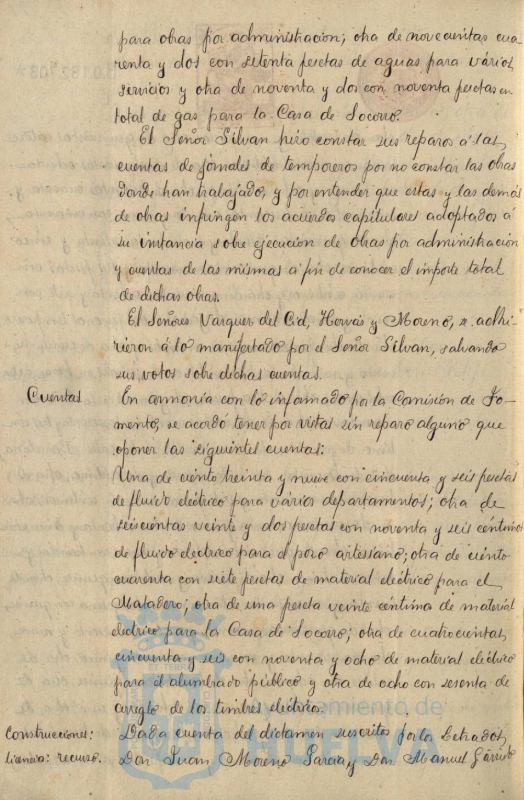 para obras por administracion; otra de novecientas cua
renta y dos con setenta pesetas de aguas para varios
servicios y otra de noventa y dos con noventa pesetas en
total de gas para la Casa de Socorro.
El Señor Silvan hizo constar sus reparos á las
cuentas de jornales de temporeros por no constar las obras
donde han trabajado, y por entender que estas y las demás
de obras infringen los acuerdos capitulares adoptados á
su instancia sobre ejecucion de obras por administracion
y cuentas de las mismas a fin de conocer el importe total
de dichas obras.
El Señores Vazquez del Cid, Hervás y Moreno, se adhi
rieron á lo manifestado por el Señor Silvan, salvando
sus votos sobre dichas cuentas.
Cuentas
En armonía con lo informado por la Comisión de Fo-
mento, se acordó tener por vistas sin reparo alguno que
oponer las siguientes cuentas:
Una de ciento treinta y nueve con cincuenta y seis pesetas
de fluido eléctrico para varios departamentos; otra de
seiscientas veinte y dos pesetas con noventa y seis centimos
de fluido electrico para el pozo artesiano; otra de ciento
cuarenta con siete pesetas de material eléctrico para el
Matadero; otra de una peseta veinte centimos de material
electrico para la Casa de Socorro; otra de cuatrocientas
cincuenta y seis con noventa y ocho de material eléctrico
para el alumbrado público y otra de ocho con sesenta de
arreglo de los timbres eléctricos.
Construcciones:
Licencia: recurso.
Dada cuenta del dictamen suscrito por los Letrados,
Don Juan Moreno Garcia, y Don Manuel Garrido
Ayuntamiento de
HUELVA